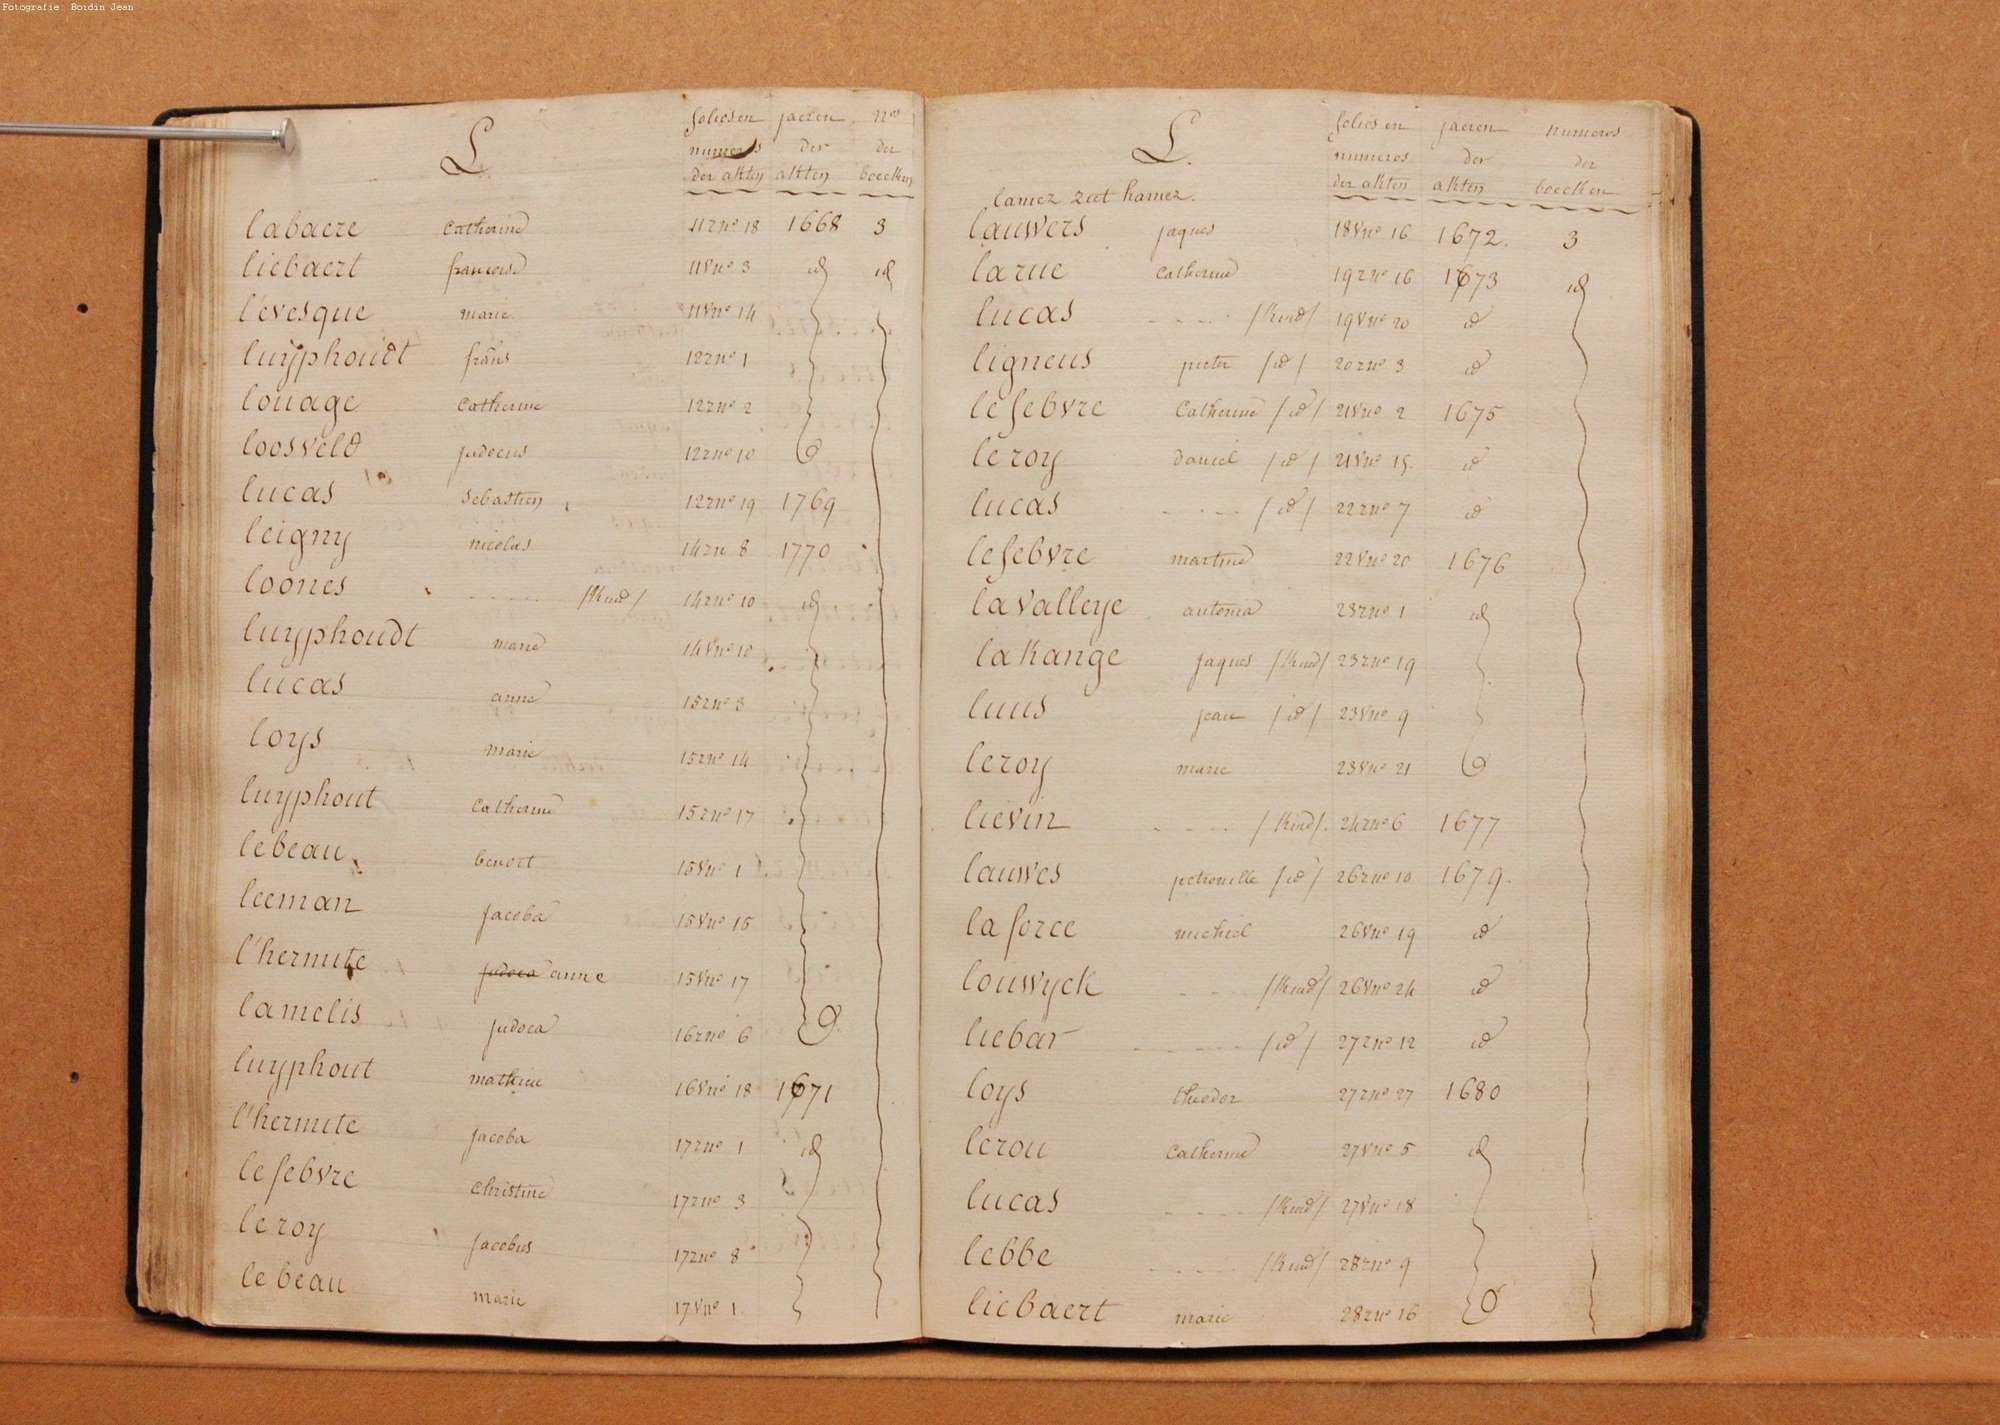 Fotografie Boidin Jean
L.
folios en jaeren nos
numeros der der
der akten akten boecken
labaere catherine 11r no 18 1668 3
liebaert francoise 11v no 3 id id
l'evesque marie 11v no 14
luyphoudt frans 12r no 1
louage catherine 12r no 2
loosveld judocus 12r no 10
lucas sebastien 12r no 19 1769
leigny nicolas 14r no 8 1770
loones - - - - - /kind/ 14r no 10 id
luyphoudt marie 14v no 10
lucas anne 15r no 3
loys marie 15r no 14
luyphout catherine 15r no 17
lebeau benoit 15v no 1
leeman jacoba 15v no 15
l'hermite judoca anne 15v no 17
lamelis judoca 16r no 6
luyphout mathieu 16v no 18 1671
l'hermite jacoba 17r no 1 id
lefebvre christine 17r no 3
leroy jacobus 17r no 8
le beau marie 17v no 1
L.
folios en jaeren numeros
numeros der der
der akten akten boecken
lamez ziet hamez.
lauwers jaques 18v no 16 1672. 3
larue catherine 19r no 16 1673 id
lucas - - - - /kind/ 19v no 20 id
ligneus pieter /id/ 20r no 3 id
lefebvre catherine /id/ 21v no 2 1675
leroy daniel /id/ 21v no 15. id
lucas - - - - /id/ 22r no 7 id
lefebvre martine 22v no 20 1676
lavalleye antonia 23r no 1 id
lakange jaques /kind/ 23r no 19
luus jean /id/ 23v no 9
leroy marie 23v no 21
lievin - - - - /kind/. 24r no 6 1677
lauwes petronille /id/ 26r no 10 1679.
laforce michiel 26v no 19 id
louwyck - - - /kind/ 26v no 24 id
liebar - - - - - /id/ 27r no 12 id
loys theodor 27r no 27 1680
lerou catherine 27v no 5 id
lucas - - - - /kind/ 27v no 18
lebbe - - - - /kind/ 28r no 9
liebaert marie 28r no 16